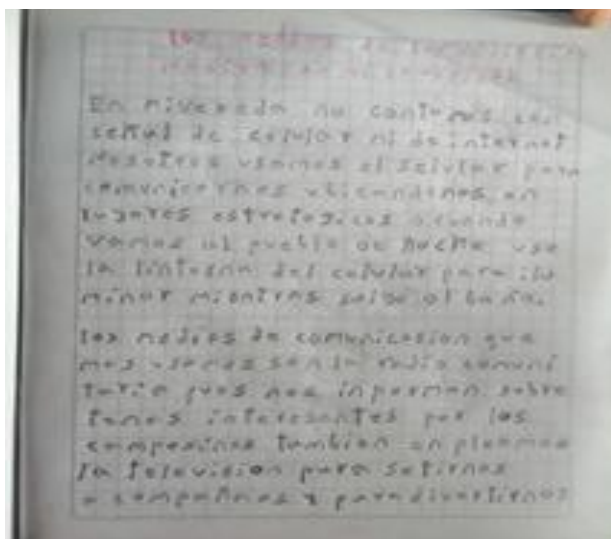 los medios de comunicacion
En mi vereda no contamos con
señal de celular ni de internet
nosotros usamos el selular para
comunicarnos ubicandonos en
lugares estrategicos o cuando
vamos al pueblo de noche uso
la linterna del celular para ilu
minar mientras salgo al baño.
los medios de comunicacion que
mas usamos son la radio comuni
taria pues nos informan sobre
temas interesantes por los
campesinos tambien en pleamos
la television para sentirnos
a compañnos y para divertirnos